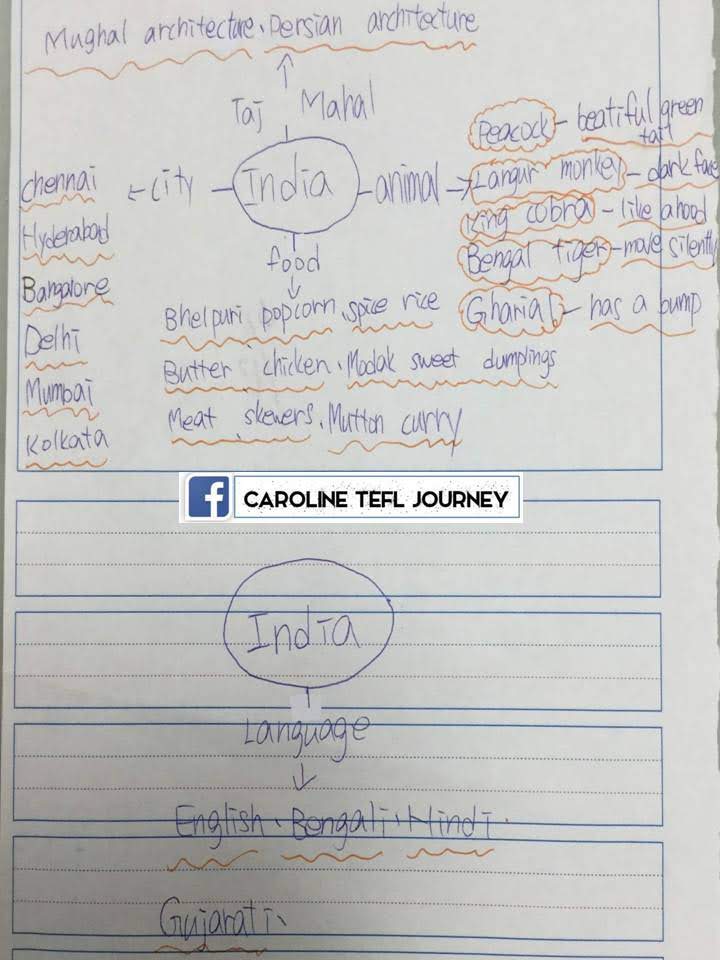 Mughal architecture、Persian architecture
Taj Mahal
India
city
chennai
Hyderabad
Bangalore
Delhi
Mumbai
Kolkata
animal
Peacock - beatiful green tail
Langur monkey - dark face
King cobra - like a hood
Bengal tiger - move silently
Gharial - has a bump
food
Bhelpuri popcorn、spice rice
Butter chicken、Modak sweet dumplings
Meat skewers、Mutton curry
CAROLINE TEFL JOURNEY
India
Language
English、Bengali、Hindi、
Gujarati、